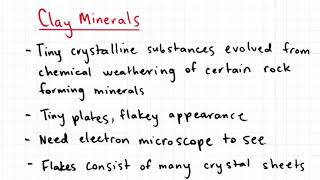 Clay Minerals
- Tiny crystalline substances evolved from
chemical weathering of certain rock
forming minerals
- Tiny plates, flakey appearance
- Need electron microscope to see
- Flakes consist of many crystal sheets